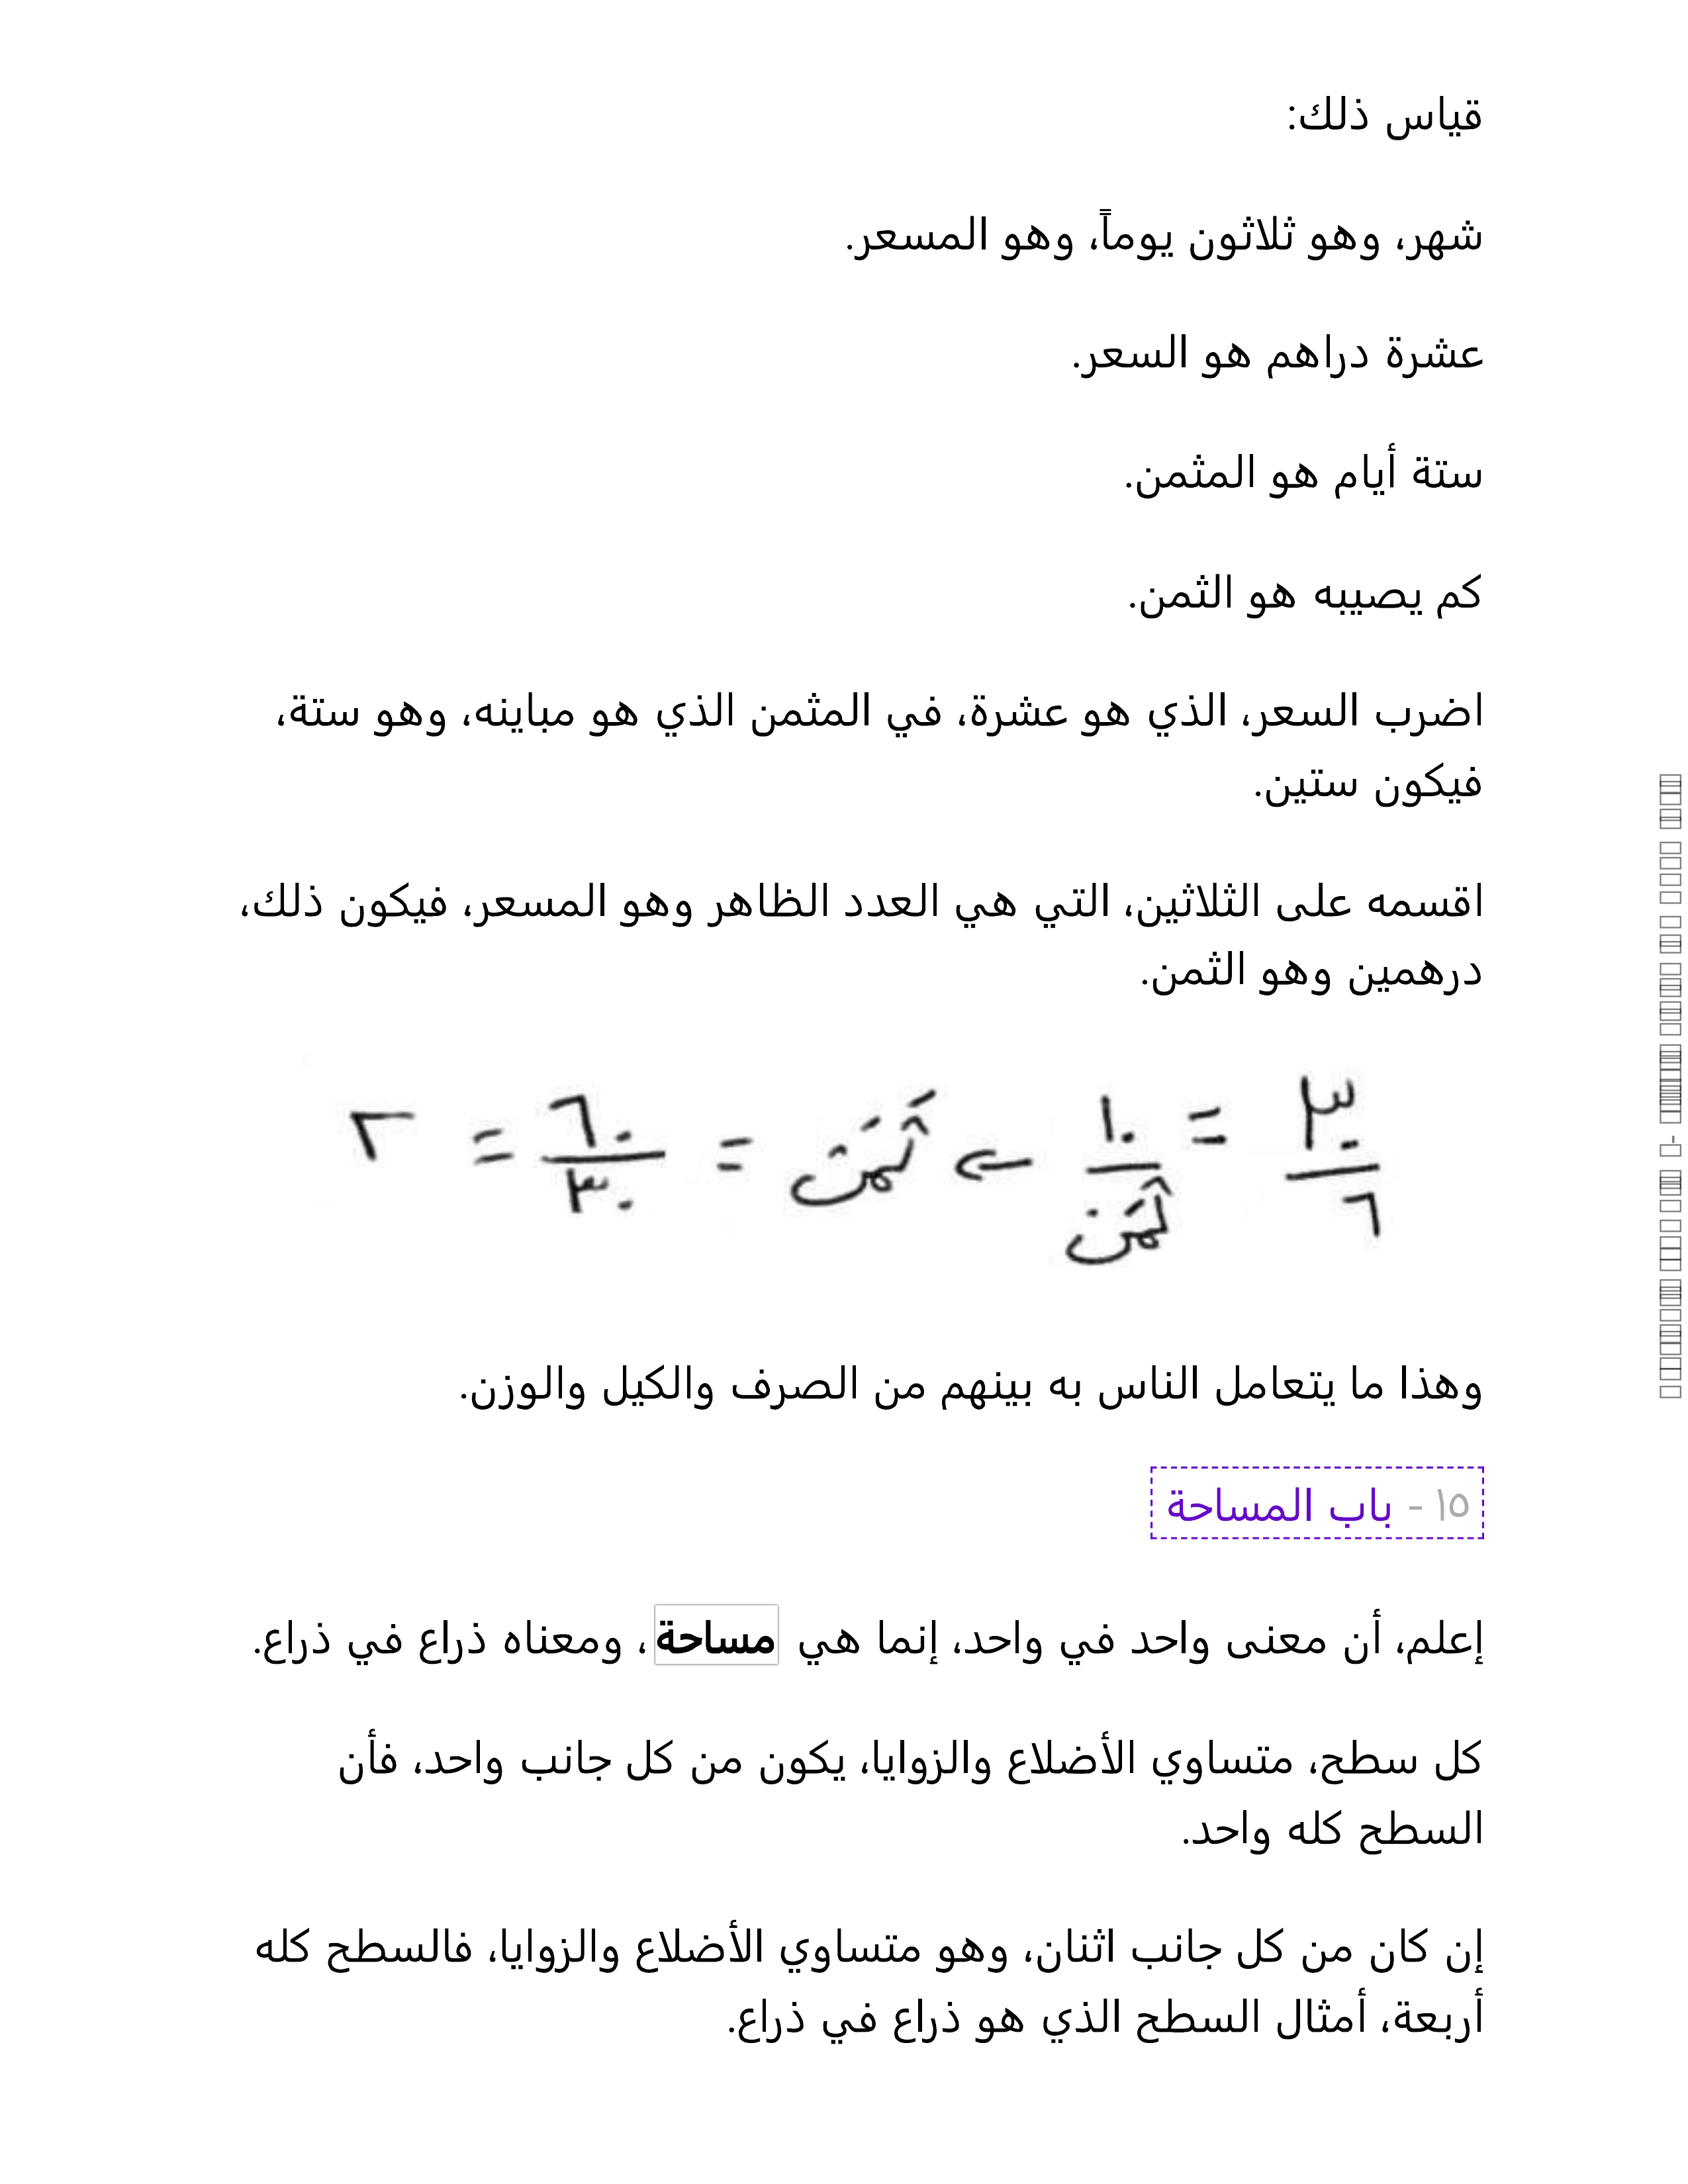 قياس ذلك:
شهر، وهو ثلاثون يوماً، وهو المسعر.
عشرة دراهم هو السعر.
ستة أيام هو المثمن.
كم يصيبه هو الثمن.
اضرب السعر، الذي هو عشرة، في المثمن الذي هو مباينه، وهو ستة،
فيكون ستين.
اقسمه على الثلاثين، التي هي العدد الظاهر وهو المسعر، فيكون ذلك،
درهمين وهو الثمن.
٣٠/٦ = ١٠/ثمن ← ثمن = ٦٠/٣٠ = ٢
وهذا ما يتعامل الناس به بينهم من الصرف والكيل والوزن.
١٥ - باب المساحة
إعلم، أن معنى واحد في واحد، إنما هي مساحة، ومعناه ذراع في ذراع.
كل سطح، متساوي الأضلاع والزوايا، يكون من كل جانب واحد، فأن
السطح كله واحد.
إن كان من كل جانب اثنان، وهو متساوي الأضلاع والزوايا، فالسطح كله
أربعة، أمثال السطح الذي هو ذراع في ذراع.